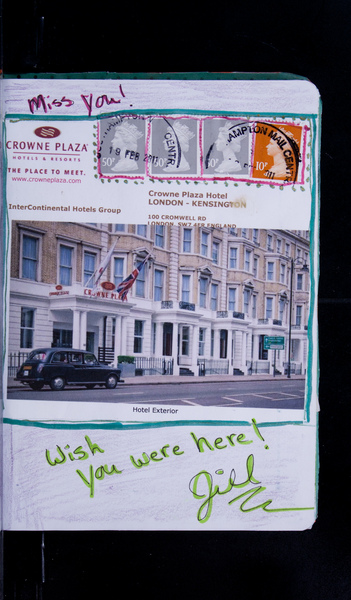 Miss You!
CROWNE PLAZA
HOTELS & RESORTS
THE PLACE TO MEET.
www.crowneplaza.com
50P
10P
18 FEB
MAIL CENTRE
Crowne Plaza Hotel
LONDON - KENSINGTON
InterContinental Hotels Group
100 CROMWELL RD
LONDON, SW7 4ER ENGLAND
CROWNE PLAZA
Hotel Exterior
Wish
You were here!
Jill